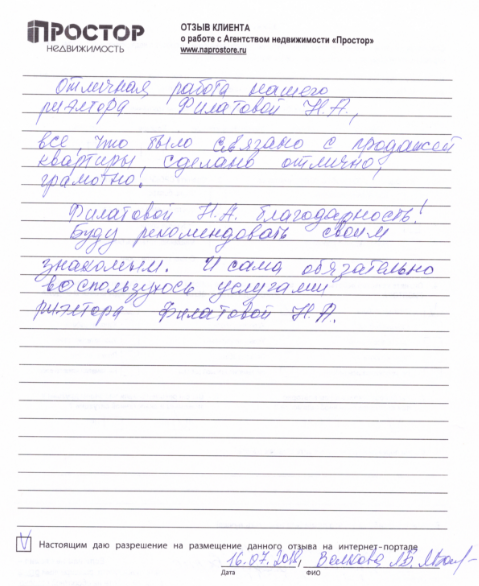 ПРОСТОР
НЕДВИЖИМОСТЬ
ОТЗЫВ КЛИЕНТА
о работе с Агентством недвижимости «Простор»
www.naprostore.ru
Отличная работа нашего
риэлтора Филатовой Н.А.,
все, что было связано с продажей
квартиры, сделано отлично,
грамотно!
Филатовой Н.А. благодарность!
Буду рекомендовать своим
знакомым. И сама обязательно
воспользуюсь услугами
риэлтора Филатовой Н.А.
V Настоящим даю разрешение на размещение данного отзыва на интернет-портале
16.07.2018, Волкова
Дата ФИО